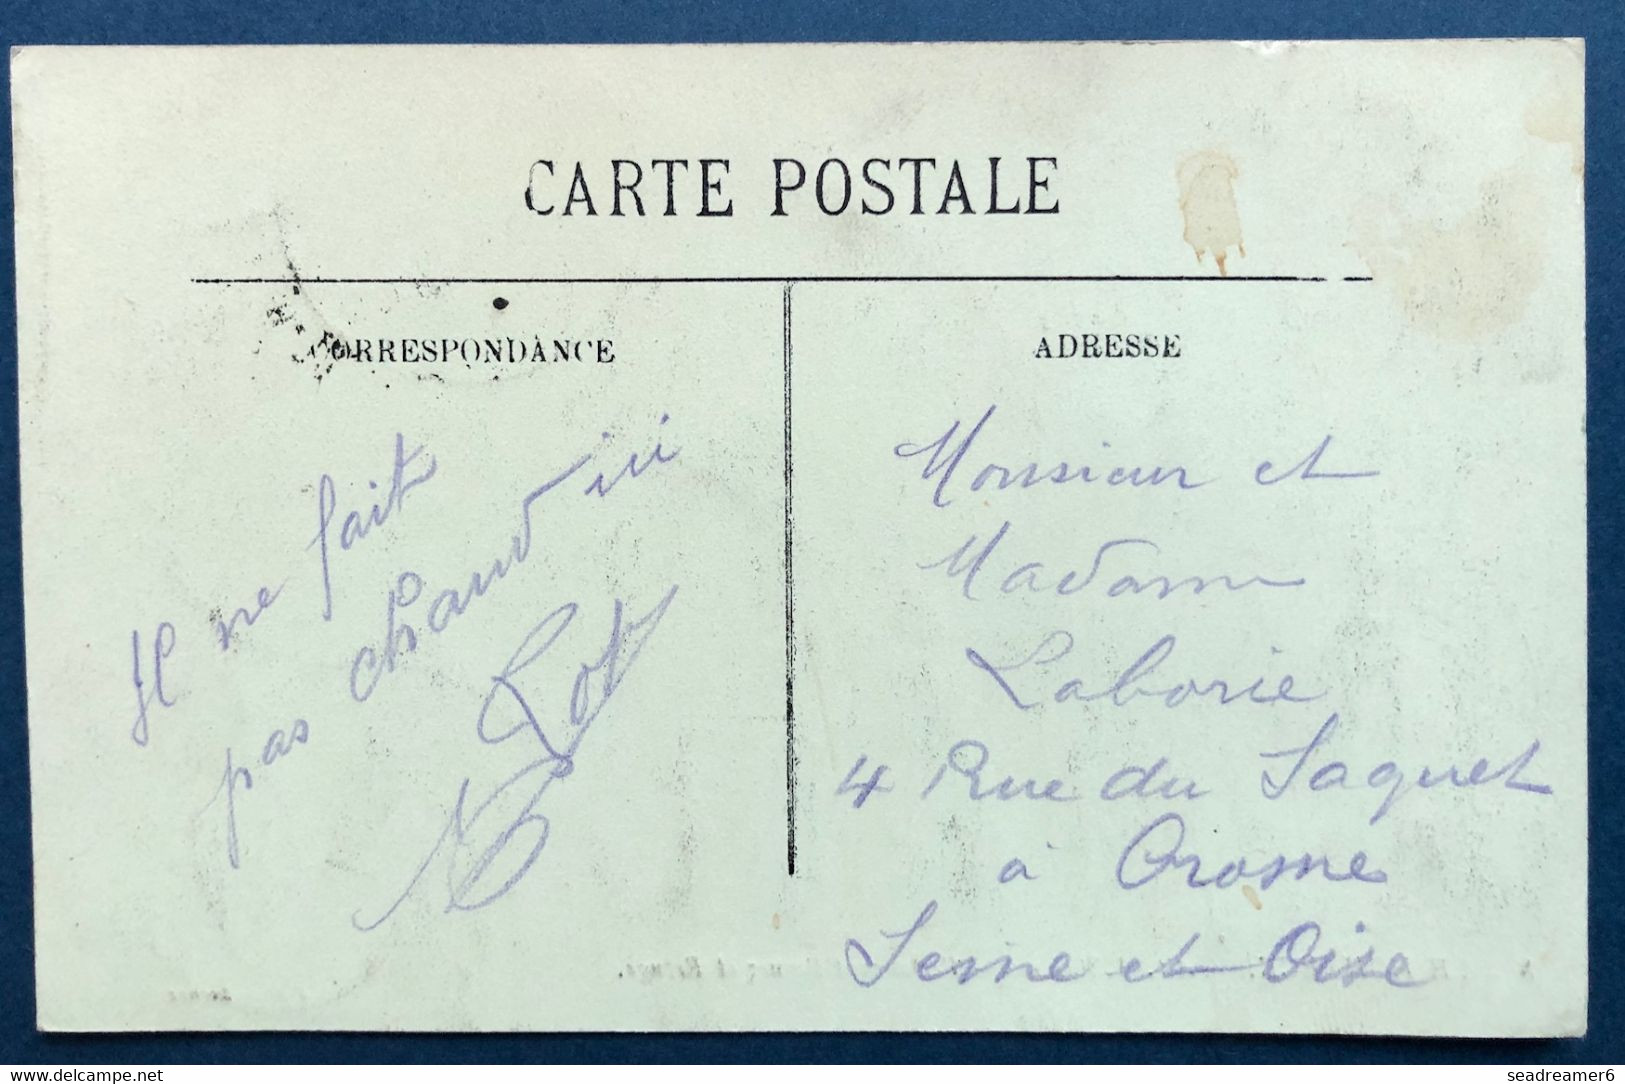 CARTE POSTALE
CORRESPONDANCE
ADRESSE
Il ne fait
pas chaud ici
Monsieur et
Madame
Laborie
4 Rue du Saquet
à Orosne
Seine et Oise
www.delcampe.net
seadreamer6